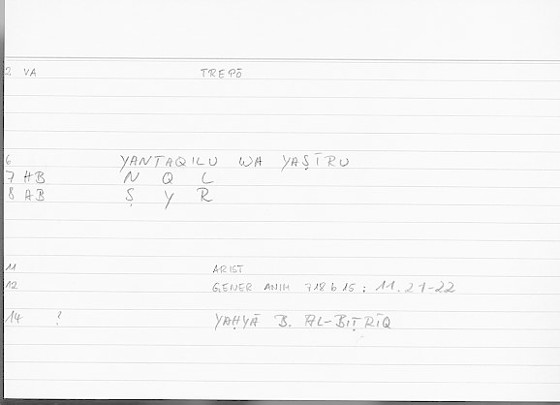 2 VA TREPŌ
6 YANTAQILU WA YAṢĪRU
7 HB N Q L
8 AB Ṣ Y R
11 ARIST
12 GENER ANIM 718 b 15 ; 11.21-22
14 ? YAḤYĀ B. AL-BIṬRĪQ